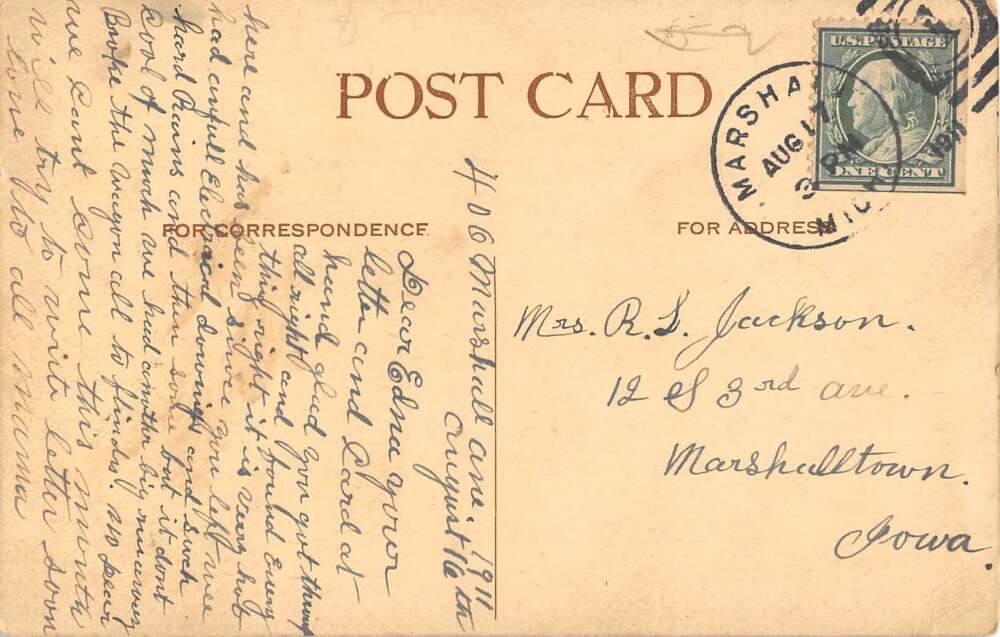 POST CARD
FOR CORRESPONDENCE
FOR ADDRESS
U.S. POSTAGE
ONE CENT
MARSHA
MICH
AUG 17
3 PM
1911
Mrs. R. S. Jackson.
12 S 3rd ave.
Marshalltown.
Iowa.
406 Marshall ave 1911
August 16th
Dear Edna your
letter and Card at
hand glad you got
all right and found Every
thing right it is very hot
here and has been since you left we
had awfull Electrical and such
hard Rains and then some but it dont
Cool of much we had another big runaway
Broke the wagon all to flinders. no dear
we cant come this month
will try to write letter soon
love to all mama